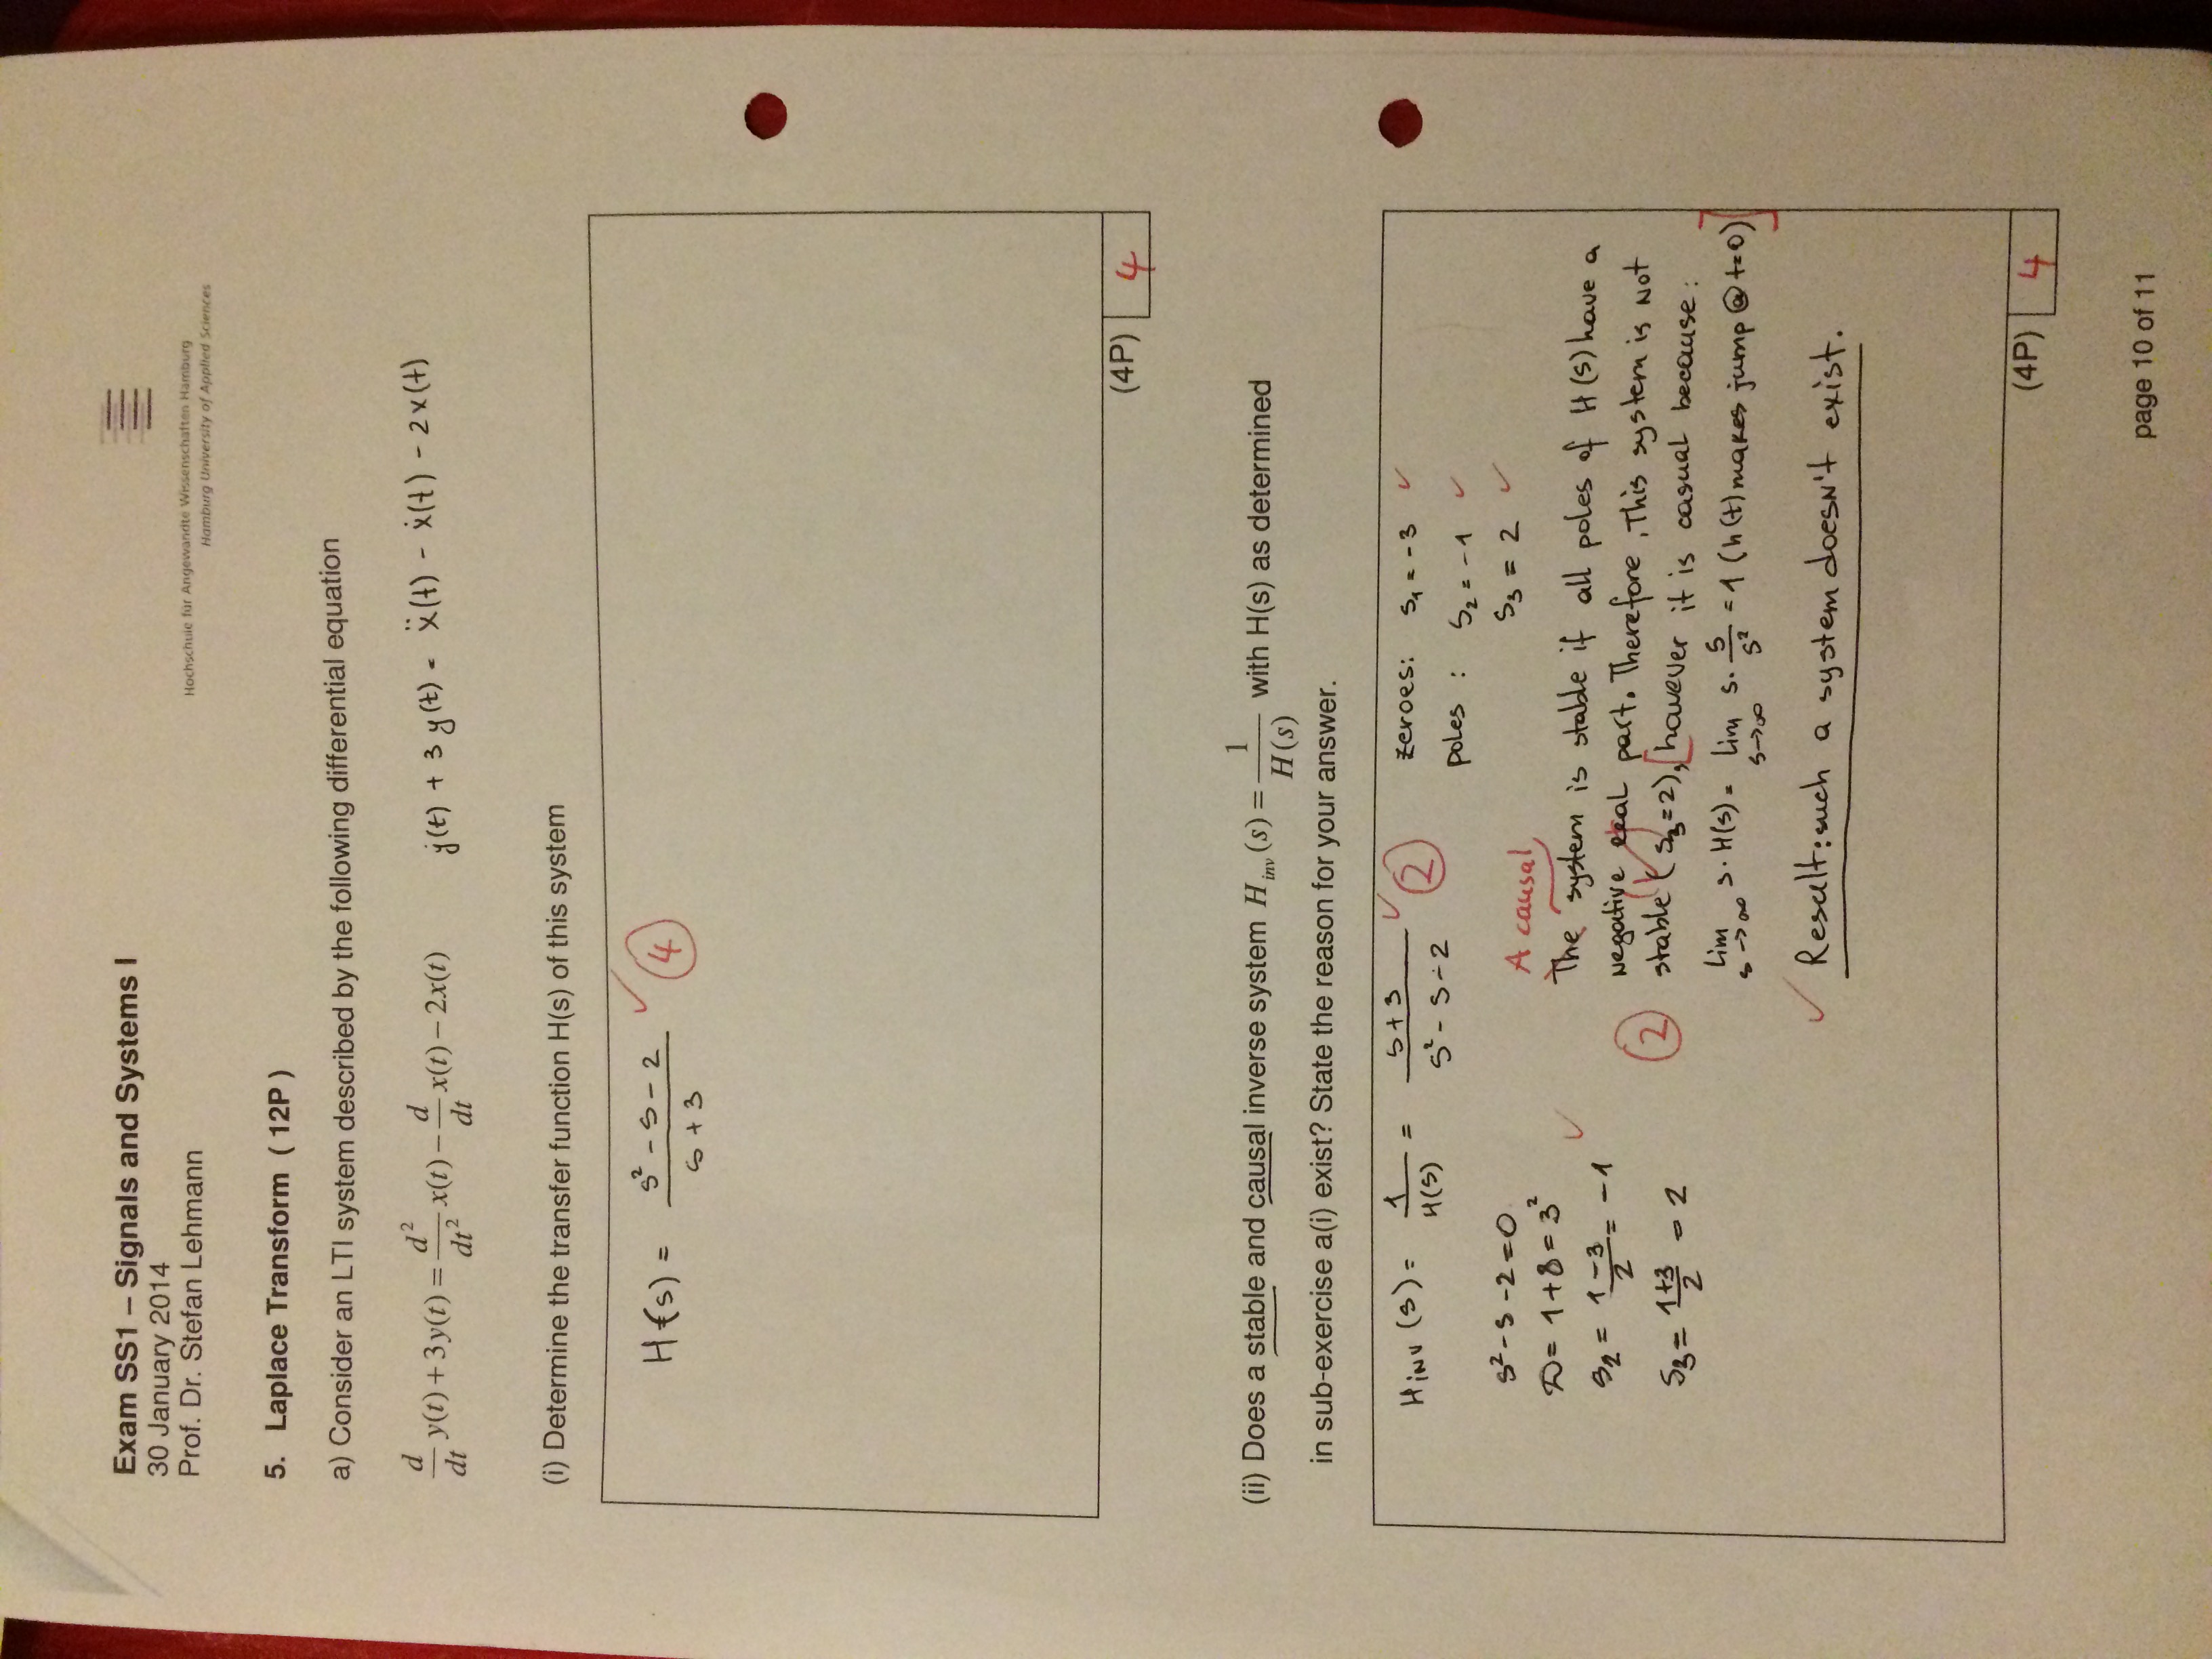 Exam SS1 – Signals and Systems I
30 January 2014
Prof. Dr. Stefan Lehmann
Hochschule für Angewandte Wissenschaften Hamburg
Hamburg University of Applied Sciences
5. Laplace Transform ( 12P )
a) Consider an LTI system described by the following differential equation
d/dt y(t) + 3y(t) = d²/dt² x(t) – d/dt x(t) – 2x(t)
ẏ(t) + 3 y(t) = ẍ(t) - ẋ(t) - 2x(t)
(i) Determine the transfer function H(s) of this system
H(s) = (s² - s - 2)/(s + 3) ✓ 4
(4P) 4
(ii) Does a stable and causal inverse system H inv (s) = 1/H(s) with H(s) as determined
in sub-exercise a(i) exist? State the reason for your answer.
HINV (s) = 1/H(s) = (s+3)/(s² - s - 2) ✓ 2
zeroes: s₁ = -3 ✓
poles : s₂ = -1 ✓
s₃ = 2 ✓
s² - s - 2 = 0
D = 1+8 = 3²
s₂ = (1-3)/2 = -1 ✓
s₃ = (1+3)/2 = 2
A causal
The system is stable if all poles of H(s) have a
negative real part. Therefore, This system is not
2
stable (s₃=2), [however it is casual because:
lim s→∞ s·H(s) = lim s→∞ s· s/s² = 1 (h(t) makes jump @ t=0)]
✓ Result: such a system doesn't exist.
(4P) 4
page 10 of 11